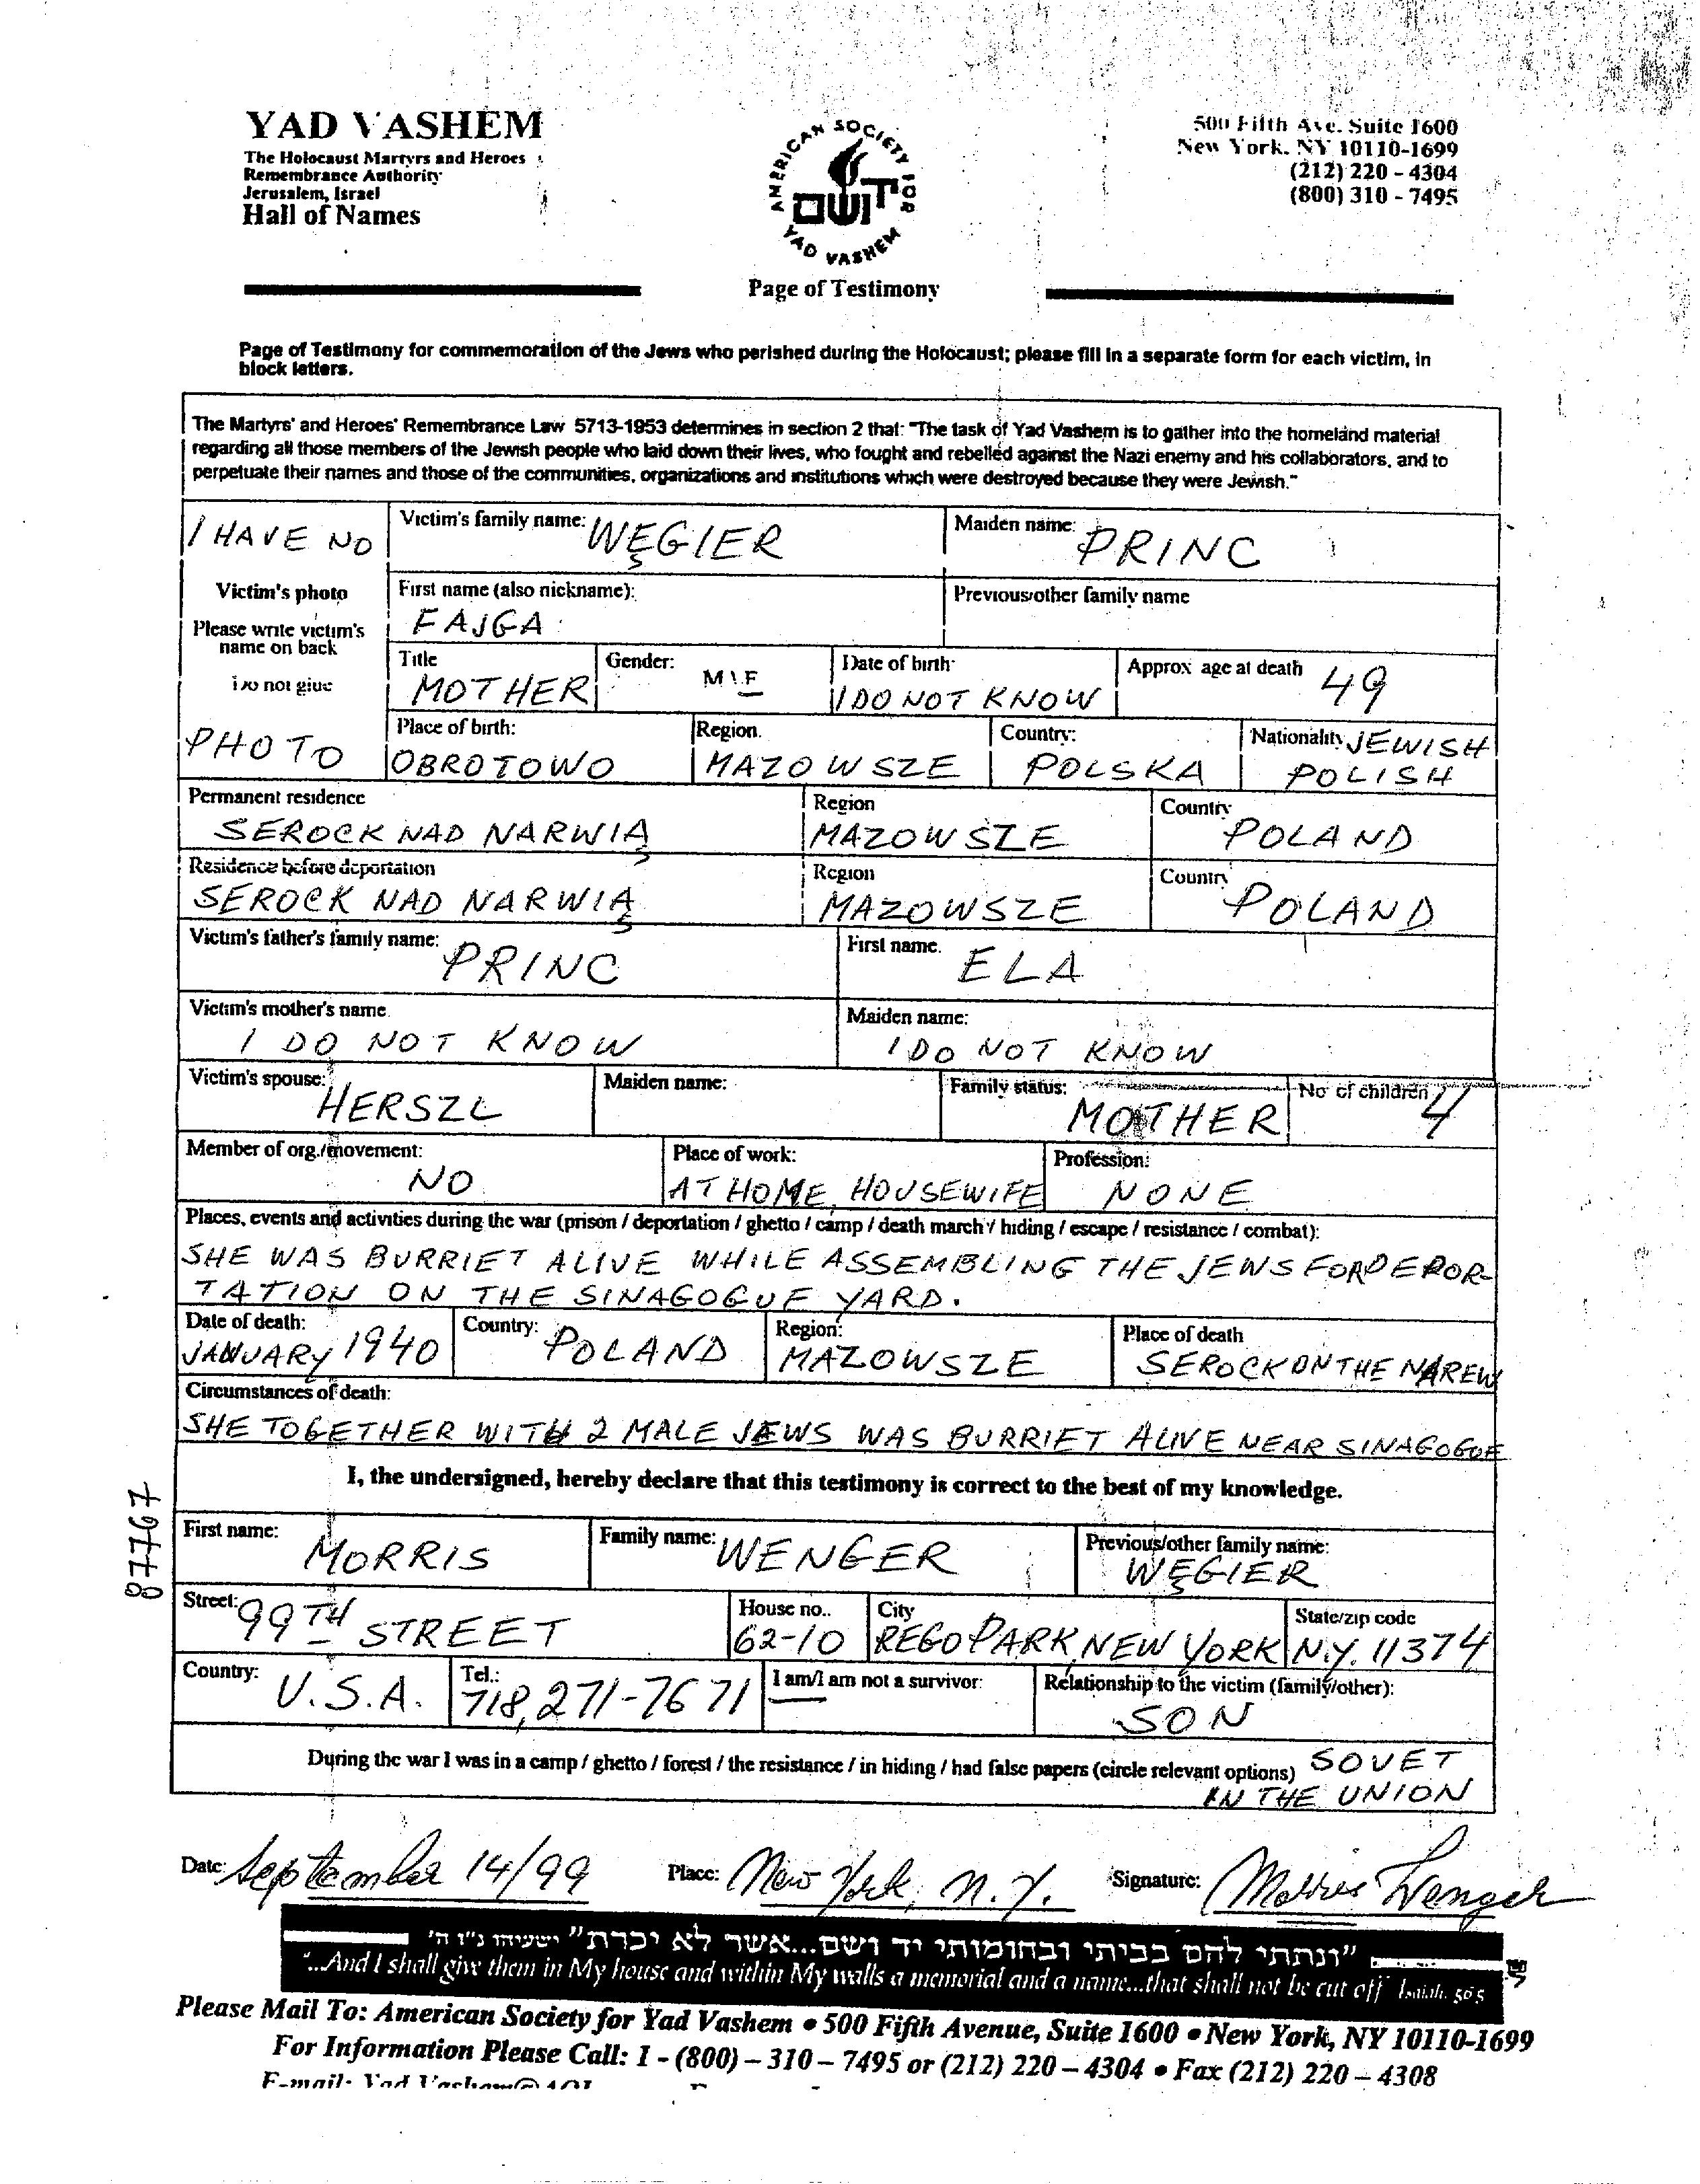 YAD VASHEM
The Holocaust Martyrs and Heroes
Remembrance Authority
Jerusalem, Israel
Hall of Names
AMERICAN SOCIETY FOR
יד ושם
YAD VASHEM
Page of Testimony
500 Fifth Ave. Suite 1600
New York. NY 10110-1699
(212) 220 - 4304
(800) 310 - 7495
Page of Testimony for commemoration of the Jews who perished during the Holocaust; please fill in a separate form for each victim, in
block letters.
The Martyrs' and Heroes' Remembrance Law 5713-1953 determines in section 2 that: "The task of Yad Vashem is to gather into the homeland material
regarding all those members of the Jewish people who laid down their lives, who fought and rebelled against the Nazi enemy and his collaborators, and to
perpetuate their names and those of the communities, organizations and institutions which were destroyed because they were Jewish."
I HAVE NO
Victim's photo
Please write victim's
name on back
Do not glue
PHOTO
Victim's family name: WĘGIER
Maiden name: PRINC
First name (also nickname):
FAJGA
Previous/other family name
Title
MOTHER
Gender: M \ F
Date of birth
I DO NOT KNOW
Approx age at death 49
Place of birth:
OBROTOWO
Region.
MAZOWSZE
Country:
POLSKA
Nationality JEWISH
POLISH
Permanent residence
SEROCK NAD NARWIĄ
Region
MAZOWSZE
Country
POLAND
Residence before deportation
SEROCK NAD NARWIĄ
Region
MAZOWSZE
Country
POLAND
Victim's father's family name: PRINC
First name. ELA
Victim's mother's name.
I DO NOT KNOW
Maiden name:
I DO NOT KNOW
Victim's spouse:
HERSZL
Maiden name:
Family status:
MOTHER
No of children 4
Member of org./movement:
NO
Place of work:
AT HOME, HOUSEWIFE
Profession:
NONE
Places, events and activities during the war (prison / deportation / ghetto / camp / death march / hiding / escape / resistance / combat):
SHE WAS BURRIET ALIVE WHILE ASSEMBLING THE JEWS FOR DEPOR-
TATION ON THE SINAGOGUE YARD.
Date of death:
JANUARY 1940
Country: POLAND
Region:
MAZOWSZE
Place of death
SEROCK ON THE NAREW
Circumstances of death:
SHE TOGETHER WITH 2 MALE JEWS WAS BURRIET ALIVE NEAR SINAGOGUE
I, the undersigned, hereby declare that this testimony is correct to the best of my knowledge.
87767
First name: MORRIS
Family name: WENGER
Previous/other family name:
WĘGIER
Street: 99TH STREET
House no..
62-10
City
REGO PARK, NEW YORK
State/zip code
N.Y. 11374
Country: U.S.A.
Tel.:
718, 271-7671
I am/I am not a survivor:
Relationship to the victim (family/other):
SON
During the war I was in a camp / ghetto / forest / the resistance / in hiding / had false papers (circle relevant options) SOVET
IN THE UNION
Date: September 14/99
Place: New York, N.Y.
Signature: Morris Wenger
"ונתתי להם בביתי ובחומותי יד ושם...אשר לא יכרת" ישעיהו נ"ו ה'
"...And I shall give them in My house and within My walls a memorial and a name...that shall not be cut off Isaiah. 56:5
Please Mail To: American Society for Yad Vashem • 500 Fifth Avenue, Suite 1600 • New York, NY 10110-1699
For Information Please Call: 1 - (800) – 310 – 7495 or (212) 220 – 4304 • Fax (212) 220 – 4308
E-mail: Yad Vashem@AOL